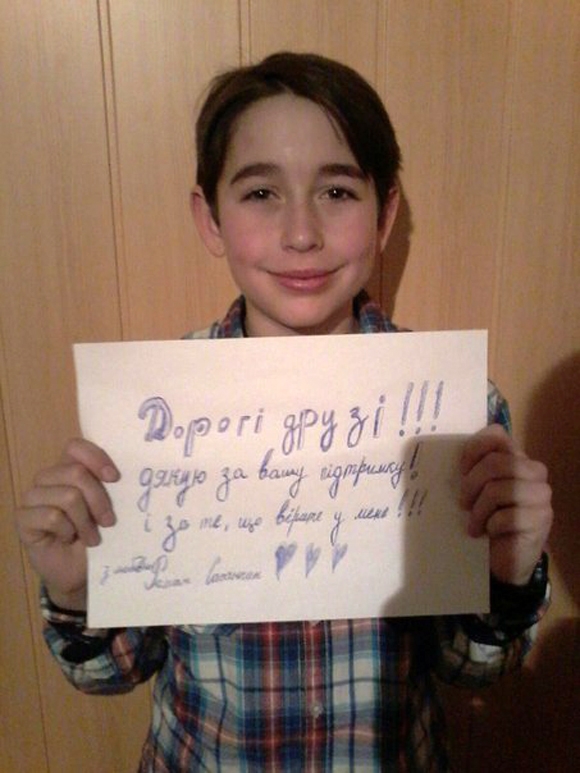 Дорогі друзі!!!
дякую за вашу підтримку!
і за те, що вірите у мене!!!
з любов'ю
Роман